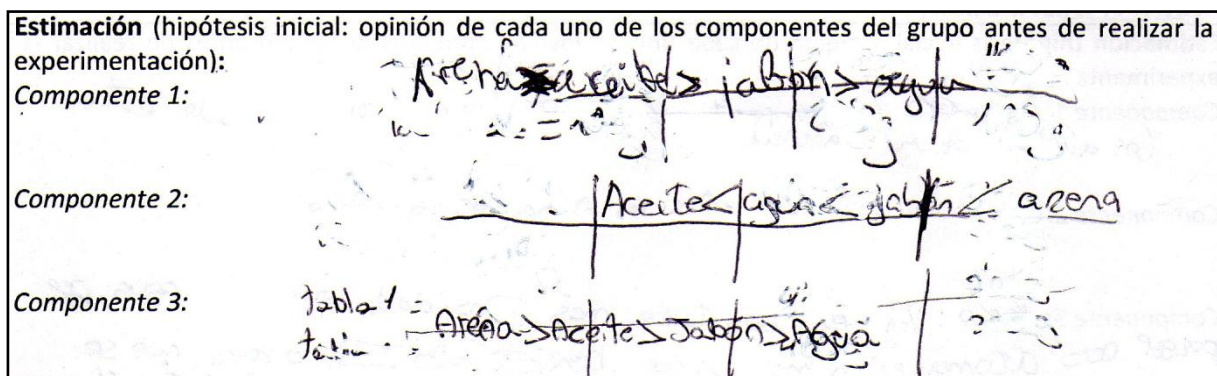 Estimación (hipótesis inicial: opinión de cada uno de los componentes del grupo antes de realizar la
experimentación):
Componente 1: Arena > aceite > jabón > agua
Componente 2: Aceite < agua < jabón < arena
Componente 3: Arena > Aceite > Jabón > Agua
tabla 1 =